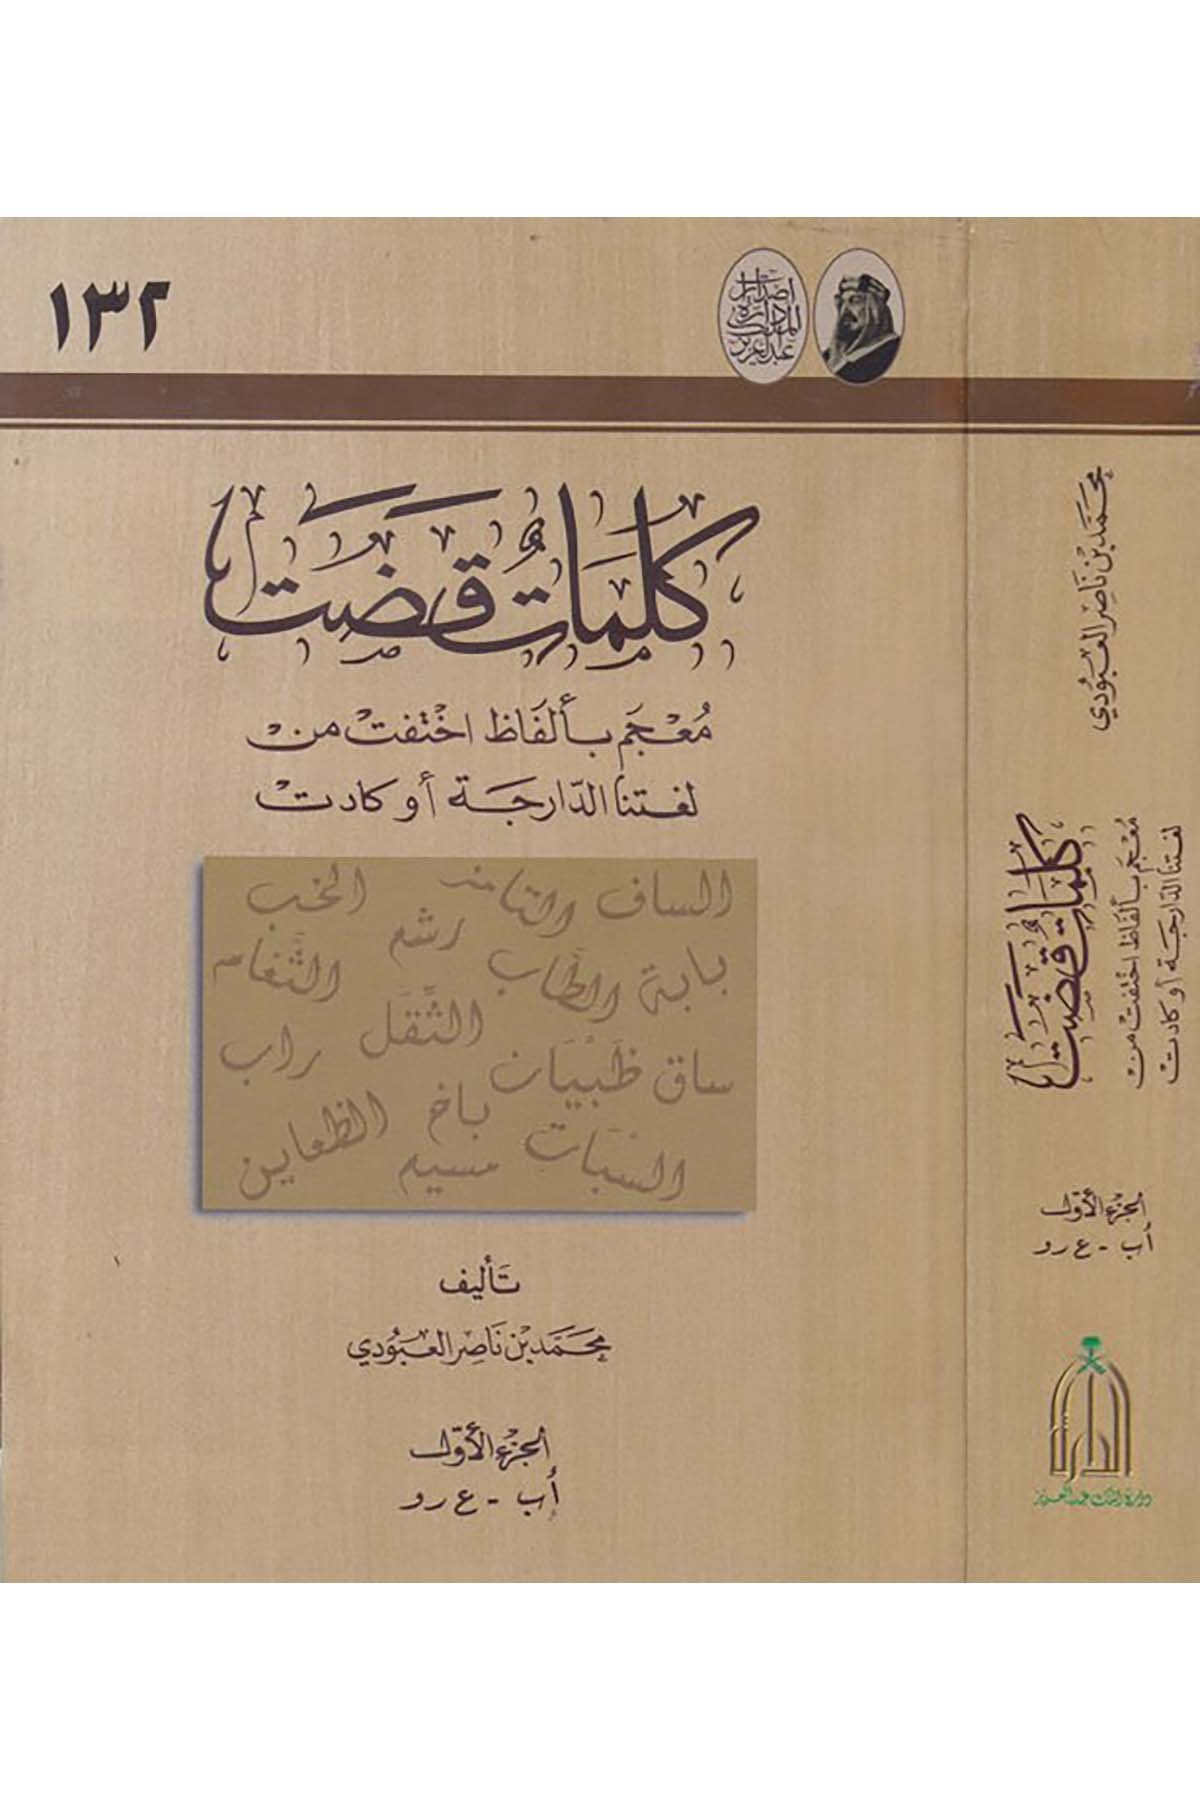 ١٣٢
إصدارات
دارة
الملك
عبدالعزيز
كلمات قضت
معجم بألفاظ اختفت من
لغتنا الدارجة أو كادت
الساف
الخب
رشم
بابة
الثقل
راب
ساق ظبيان
باخ
الظعاين
مسيم
السنبات
تأليف
محمد بن ناصر العبودي
الجزء الأول
أب - ع رو
محمد بن ناصر العبودي
كلمات قضت
معجم بألفاظ اختفت من
لغتنا الدارجة أو كادت
الجزء الأول
أب - ع رو
الدارة
دارة الملك عبدالعزيز